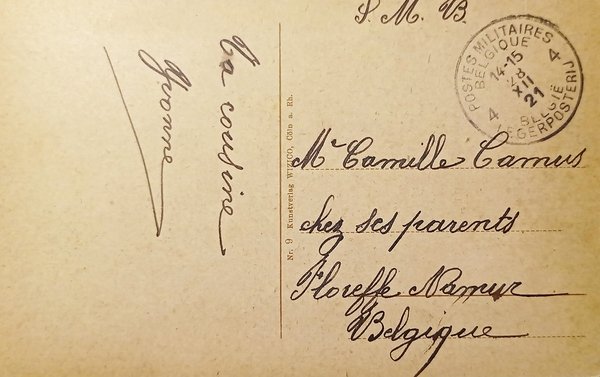 S. M. B.
POSTES MILITAIRES
BELGIQUE
14-15
28
XII
21
BELGIË
LEGERPOSTERIJ
4 4
Ta cousine
Yvonne
Nr. 9 Kunstverlag WIZICO, Cöln a. Rh.
Mr Camille Camus
chez ses parents
Floreffe Namur
Belgique